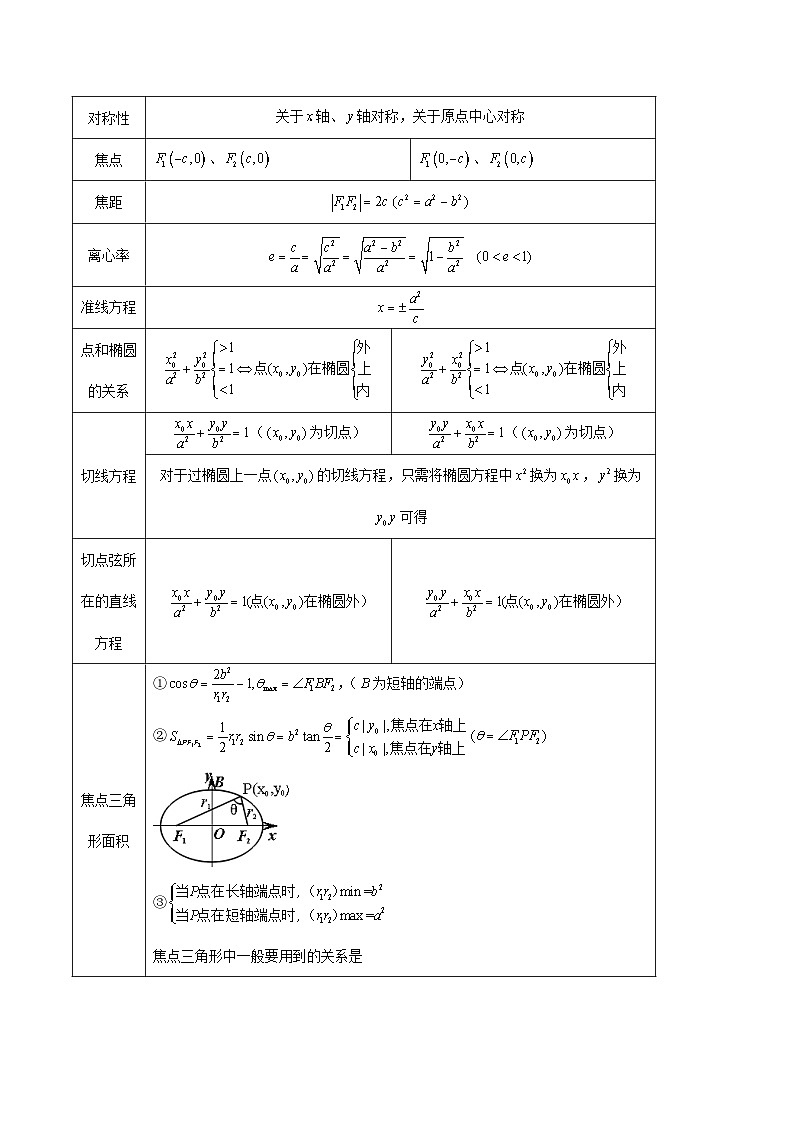 对称性 关于x轴、y轴对称，关于原点中心对称
焦点 F₁(−c,0)、F₂(c,0) F₁(0,−c)、F₂(0,c)
焦距 |F₁F₂| = 2c (c² = a² − b²)
离心率 e = c/a = √(c²/a²) = √((a² − b²)/a²) = √(1 − b²/a²) (0 < e < 1)
准线方程 x = ± a²/c
点和椭圆的关系 x₀²/a² + y₀²/b² { >1 =1 <1 ⇔ 点(x₀, y₀)在椭圆 { 外 上 内 y₀²/a² + x₀²/b² { >1 =1 <1 ⇔ 点(x₀, y₀)在椭圆 { 外 上 内
切线方程 x₀x/a² + y₀y/b² = 1（(x₀, y₀)为切点） y₀y/a² + x₀x/b² = 1（(x₀, y₀)为切点）
对于过椭圆上一点(x₀, y₀)的切线方程，只需将椭圆方程中x²换为x₀x，y²换为
y₀y可得
切点弦所
在的直线
方程
x₀x/a² + y₀y/b² = 1(点(x₀, y₀)在椭圆外） y₀y/a² + x₀x/b² = 1(点(x₀, y₀)在椭圆外）
焦点三角
形面积
①cosθ = 2b²/(r₁r₂) − 1, θmax = ∠F₁BF₂,（B为短轴的端点）
②S△PF₁F₂ = 1/2 r₁r₂ sinθ = b² tan θ/2 = { c|y₀|,焦点在x轴上 c|x₀|,焦点在y轴上 (θ = ∠F₁PF₂)
y B P(x₀,y₀)
r₁ θ r₂
F₁ O F₂ x
③{ 当P点在长轴端点时,（r₁r₂）min = b²
当P点在短轴端点时,（r₁r₂）max = a²
焦点三角形中一般要用到的关系是